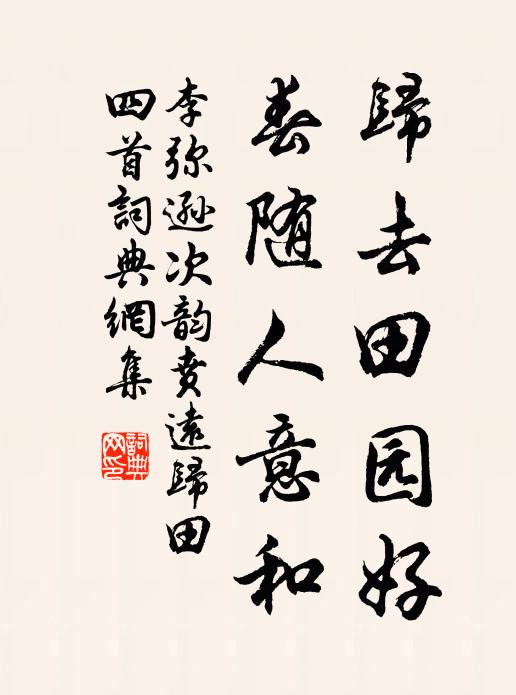 歸去田园好
春随人意和
李弥逊次韵賁遠歸田
四首詞典網集
詞典网印